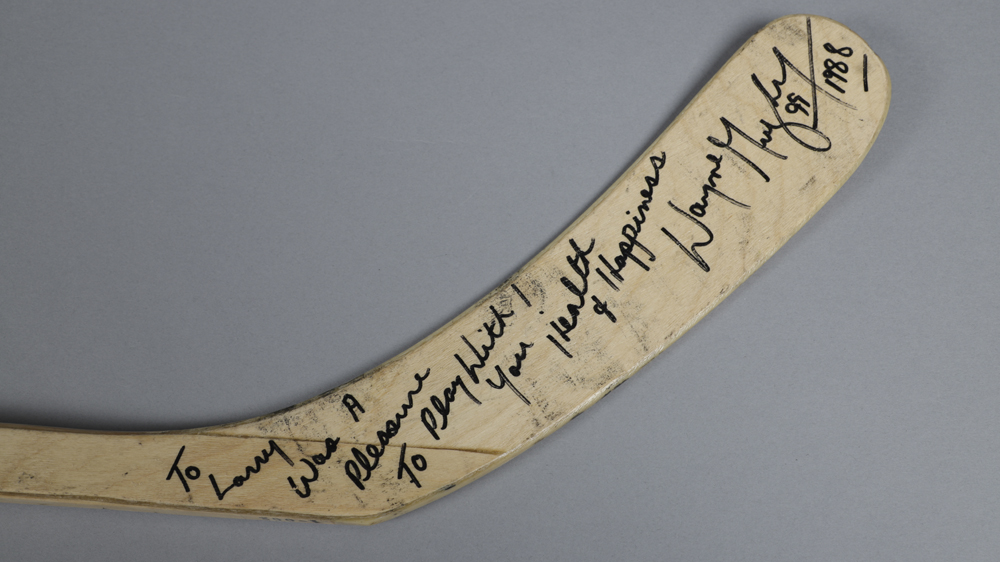 To
Larry
Was A
Pleasure
To Play With!
You Health
& Happiness
Wayne Gretzky
99
1988